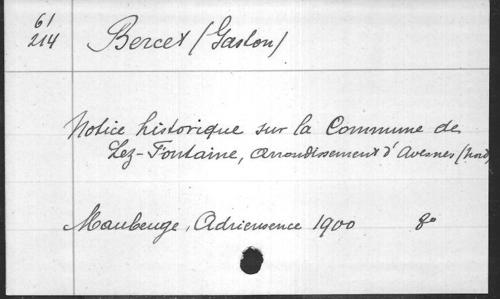 61
214
Bercet (Gaston)
Notice historique sur la Commune de
Lez-Fontaine, arrondissement d'Avesnes (Nord)
Maubeuge, 1900 8°